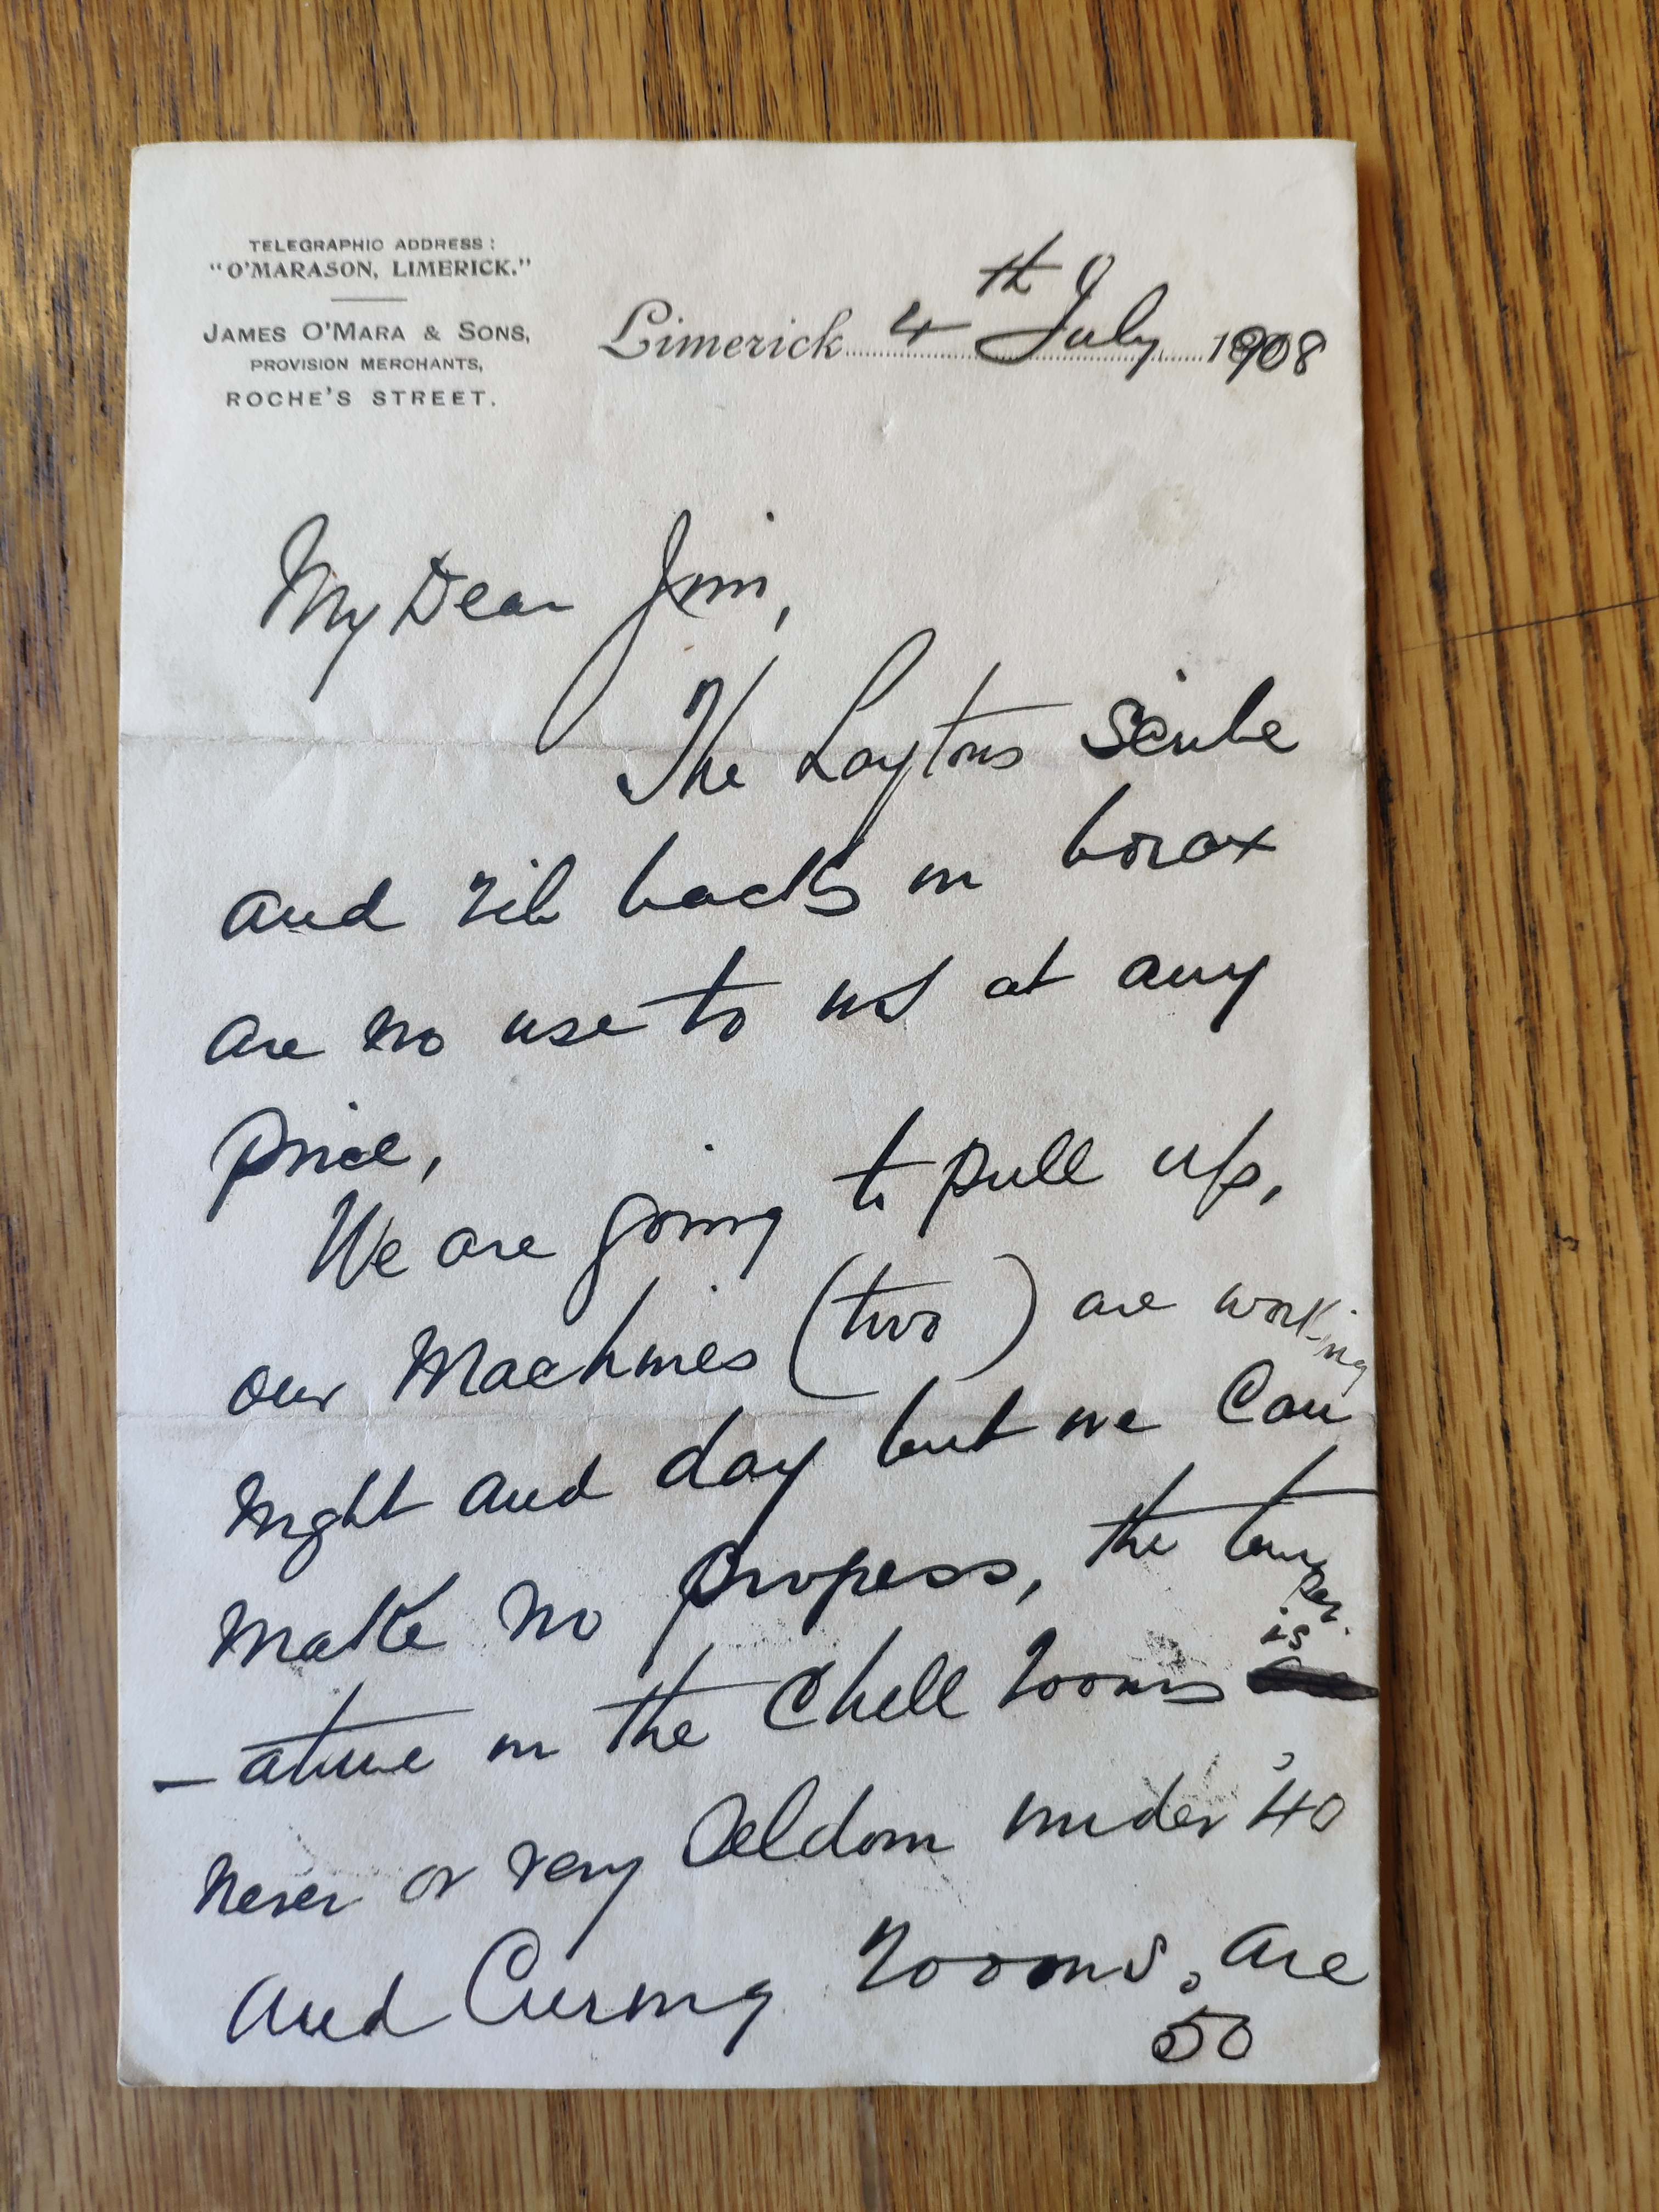 TELEGRAPHIC ADDRESS:
"O'MARASON, LIMERICK."
JAMES O'MARA & SONS,
PROVISION MERCHANTS,
ROCHE'S STREET.
Limerick 4th July 1908
My Dear Jim,
The Laytons
and rib backs in borax
are no use to us at any
price,
We are going to pull up,
our Machines (two) are working
night and day but we Can
make no progress, the temper
-ature in the Chill rooms is
never or very seldom under 40
and Curing rooms, are
50